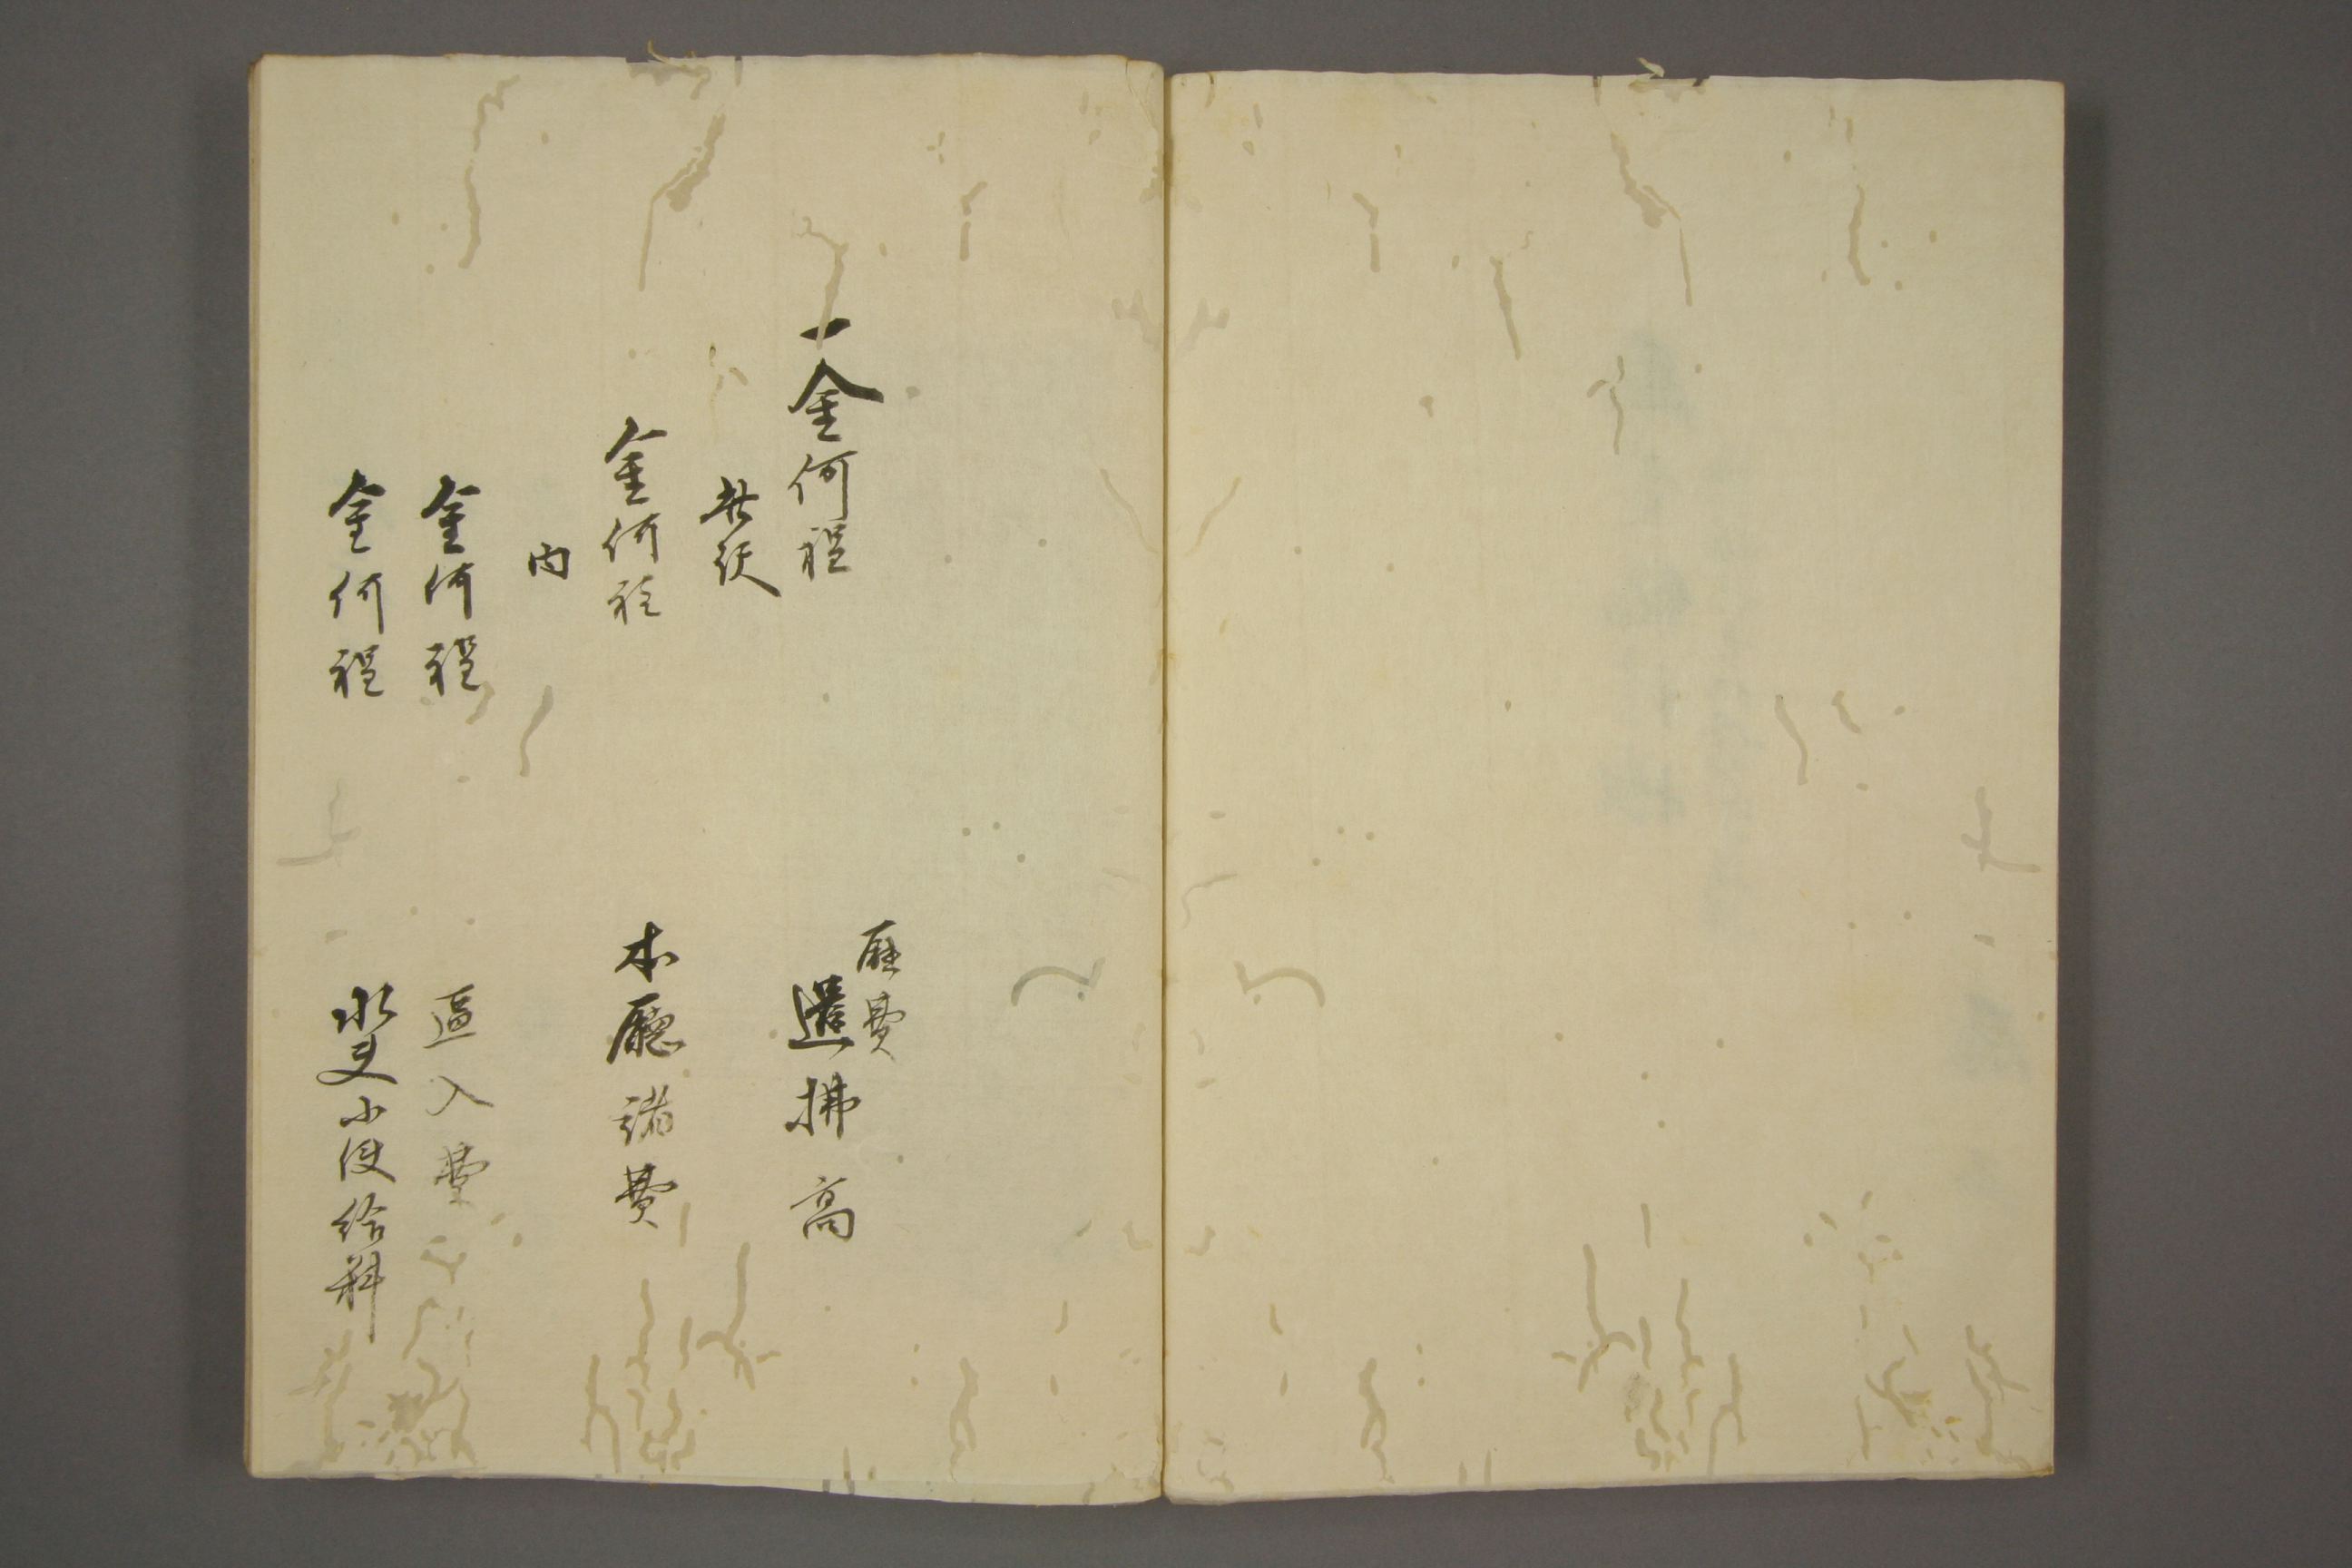 庁費
一金何程 遣拂高
此訳
金何程 本廳諸費
内
金何程 逓入費
金何程 水夫小使給料